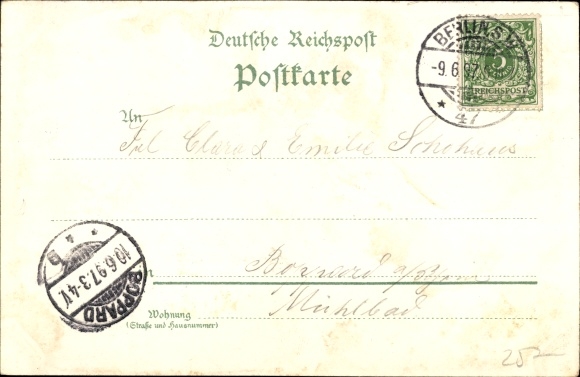 Deutsche Reichspost
Postkarte
BERLIN S.W.
-9.6.97
* 47
5
REICHSPOST
An
Frl Clara & Emilie
in
Boppard a/Rhein
Mühlbad
Wohnung
(Straße und Hausnummer)
BOPPARD
10.6.97.3-4N.
* *
20-